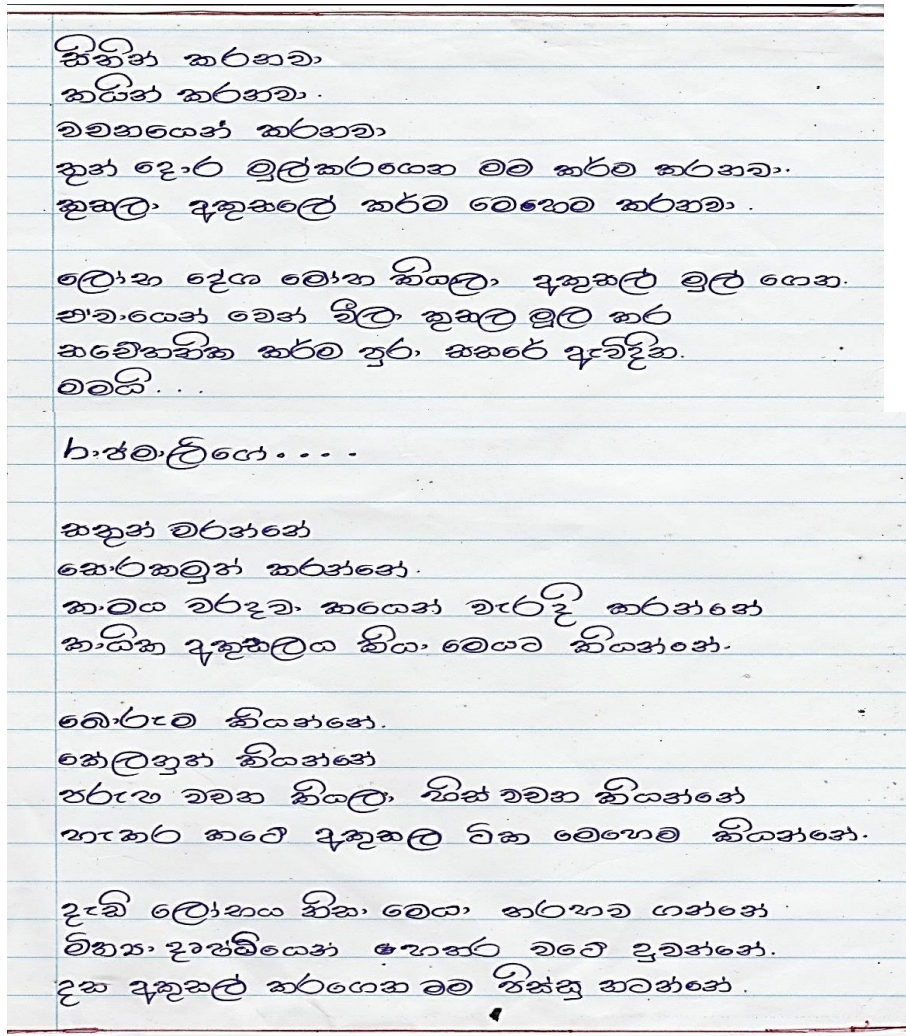 සිතින් කරනවා
කයින් කරනවා.
වචනයෙන් කරනවා
තුන් දොර මුල්කරගෙන මම කර්ම කරනවා.
කුසලා අකුසලේ කර්ම මෙහෙම කරනවා.
ලෝභ දේශ මෝහ කියලා අකුසල් මුල් ගෙන.
ඒවායෙන් වෙන් වීලා කුසල මූල කර
සචේතනික කර්ම පුරා සසරේ ඇවිදින.
මමයි...
රාජ්මාලිගේ....
සතුන් මරන්නේ
සොරකමුත් කරන්නේ.
කාමය වරදවා කයෙන් වැරදි කරන්නේ
කායික අකුසලය කියා මෙයට කියන්නේ.
බොරුම කියන්නේ.
කේලනුත් කියන්නේ
පරුෂ වචන කියලා හිස් වචන කියන්නේ
හැකර කටේ අකුසල ටික මෙහෙම කියන්නේ.
දැඩි ලෝභය නිසා මෙයා තරහව ගන්නේ
මිත්‍යා දෘෂ්ඨියෙන් හෙතර වටේ දුවන්නේ.
දස අකුසල් කරගෙන මම පිස්සු නටන්නේ.